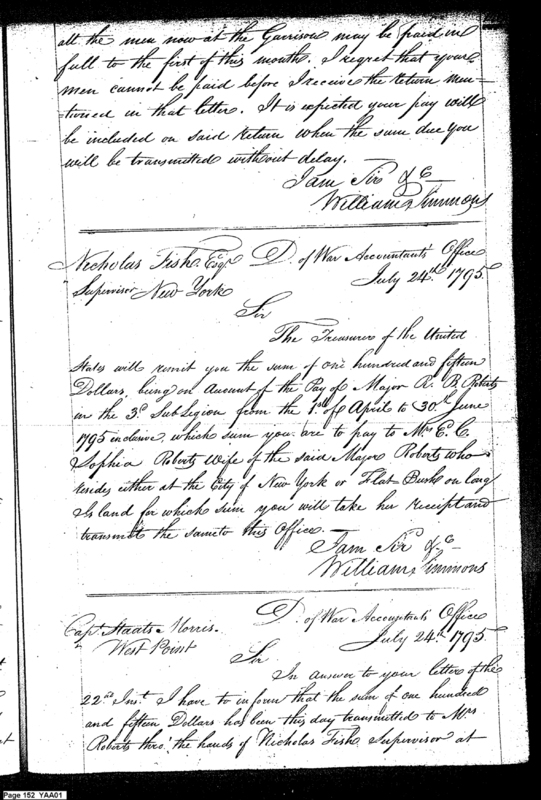 all the men now at the Garrison may be paid in
full to the first of this month. I regret that your
men cannot be paid before I receive the Return men-
-tioned in that letter. It is expected your pay will
be included on said Return when the sum due you
will be transmitted without delay.
I am Sir &c
William Simmons
Nicholas Fish Esqr. D. of War Accountants Office
Supervisor New York July 24th. 1795
Sir
The Treasurer of the United
States will remit you the sum of one hundred and fifteen
Dollars, being on Account of the Pay of Major R. B. Roberts
in the 3d Sub Legion from the 1st of April to 30th June
1795 inclusive, which sum you are to pay to Mrs E. C.
Sophia Roberts Wife of the said Major Roberts who
resides either at the City of New York or Flat Bush on long
Island for which sum you will take her receipt and
transmit the same to this Office.
I am Sir &c
William Simmons
D. of War Accountants Office
Capt. Staats Morris. July 24th. 1795
West Point
Sir
In answer to your letter of the
22nd Inst. I have to inform that the sum of one hundred
and fifteen Dollars has been this day transmitted to Mrs
Roberts thro' the hands of Nicholas Fish Supervisor at
Page 152 YAA01